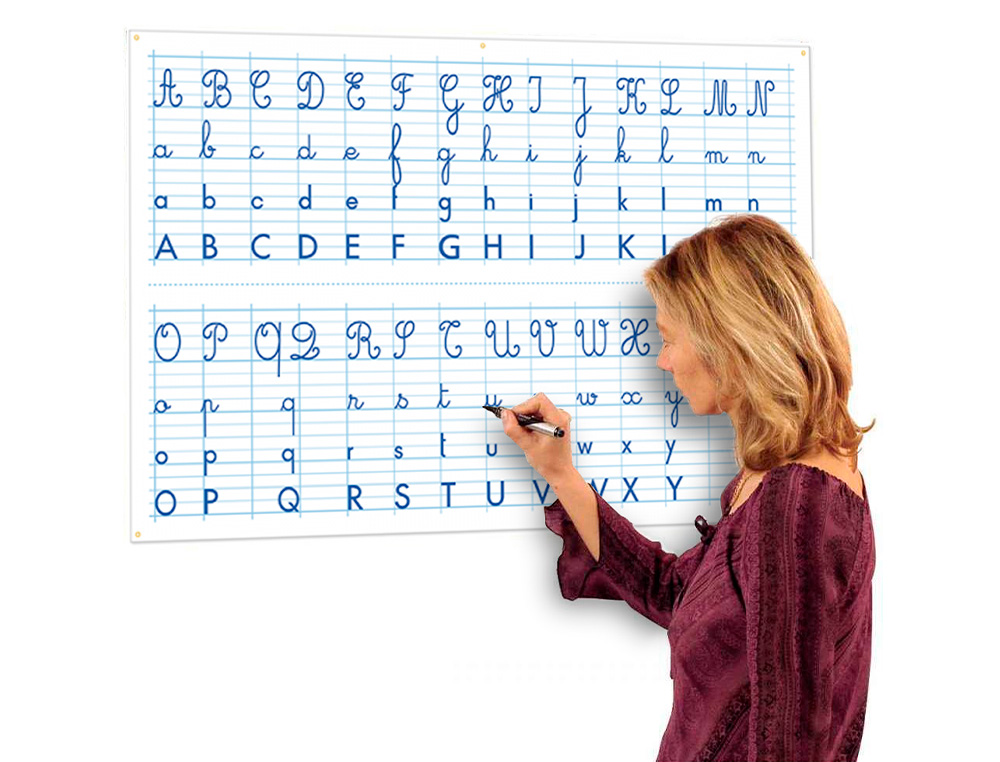 A B C D E F G H I J K L M N
a b c d e f g h i j k l m n
a b c d e f g h i j k l m n
A B C D E F G H I J K
O P Q Q R S T U V W X
o p q r s t u w x y
o p q r s t u w x y
O P Q R S T U V W X Y